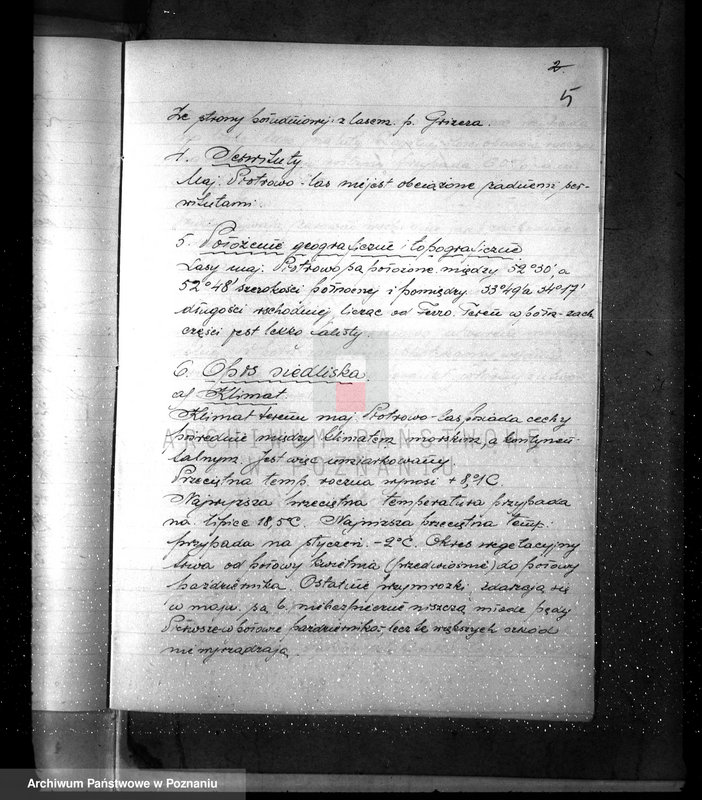 2.
5
Ze strony południowej z lasem p. Grizera.
4. Serwituty
Maj. Piotrowo-las nie jest obciążone żadnemi ser-
witutami.
5. Położenie geograficzne i topograficzne
Lasy maj. Piotrowo są położone między 52°30' a
52°48' szerokości północnej i pomiędzy 33°49' a 34°17'
długości wschodniej licząc od Ferro. Teren w połu-zach.
części jest lekko falisty.
6. Opis siedliska.
a/ Klimat.
Klimat terenu maj. Piotrowo-las posiada cechy
pośrednie między klimatem morskim, a kontynen-
talnym. Jest więc umiarkowany
Przeciętna temp. roczna wynosi +8,1°C.
Najwyższa przeciętna temperatura przypada
na lipiec 18,5°C. Najniższa przeciętna temp.
przypada na styczeń -2°C. Okres wegetacyjny
trwa od połowy kwietnia (przedwiośnie) do połowy
października. Ostatnie przymrozki zdarzają się
w maju są b. niebezpieczne niszczą młode pędy
Pierwsze w połowie października lecz te większych szkód
nie wyrządzają
ARCHIWUM PAŃSTWOWE
W POZNANIU
Archiwum Państwowe w Poznaniu